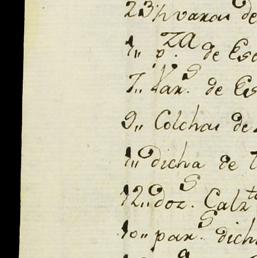 23½ varas de
1,, p.za de Es
7,, Var.s de Es
9,, Colchas de
1,, dicha de
12,, doz.s Calz
10,, par.s dich